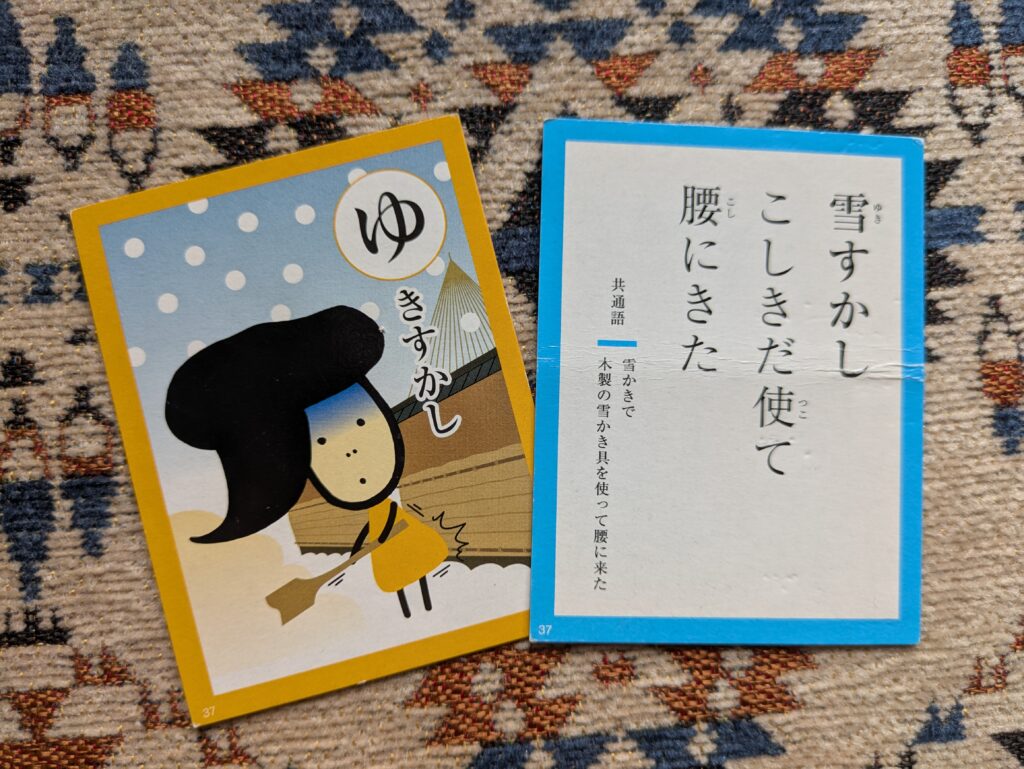 ゆ
きすかし
37
雪すかし
ゆき
こしきだ使て
つこ
腰にきた
こし
共通語
雪かきで
木製の雪かき具を使って腰に来た
37